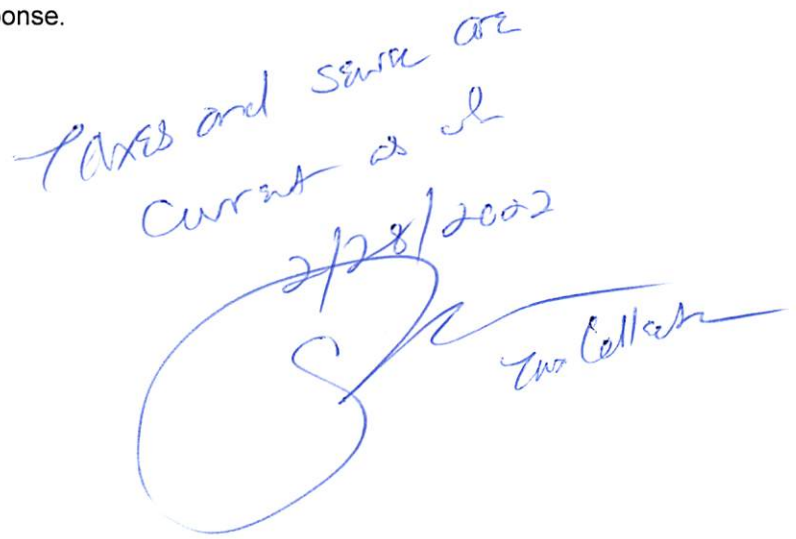 onse.
Taxes and sewer are
current as of
2/28/2022
Tax Collector